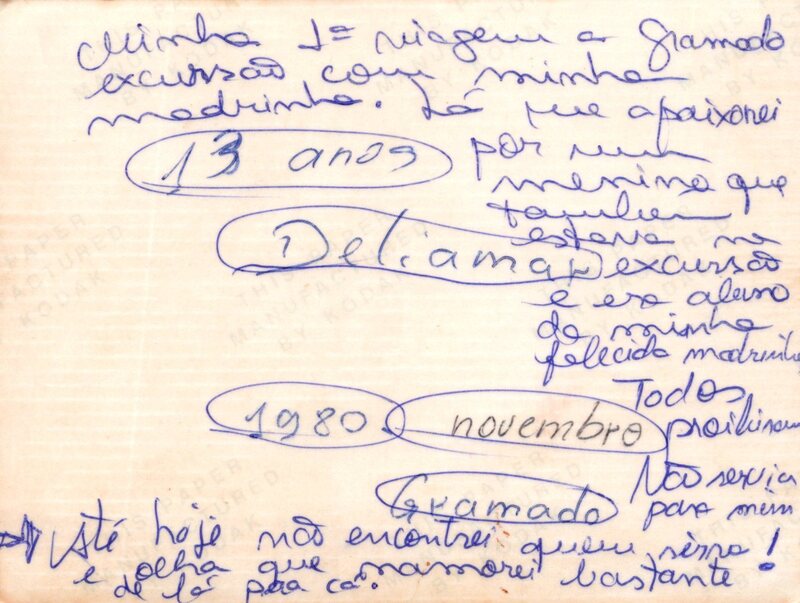 Minha 1ª viagem a Gramado
excursão com minha
madrinha. Lá me apaixonei
13 anos
por um
menino que
também
estava na
Deliamar
excursão
e era aluno
da minha
falecida madrinha
Todos
proibiram
1980 novembro
Não servia
para mim
Gramado
Até hoje não encontrei quem sirva!
e olha que namorei bastante
de lá pra cá.
THIS PAPER
MANUFACTURED
BY KODAK